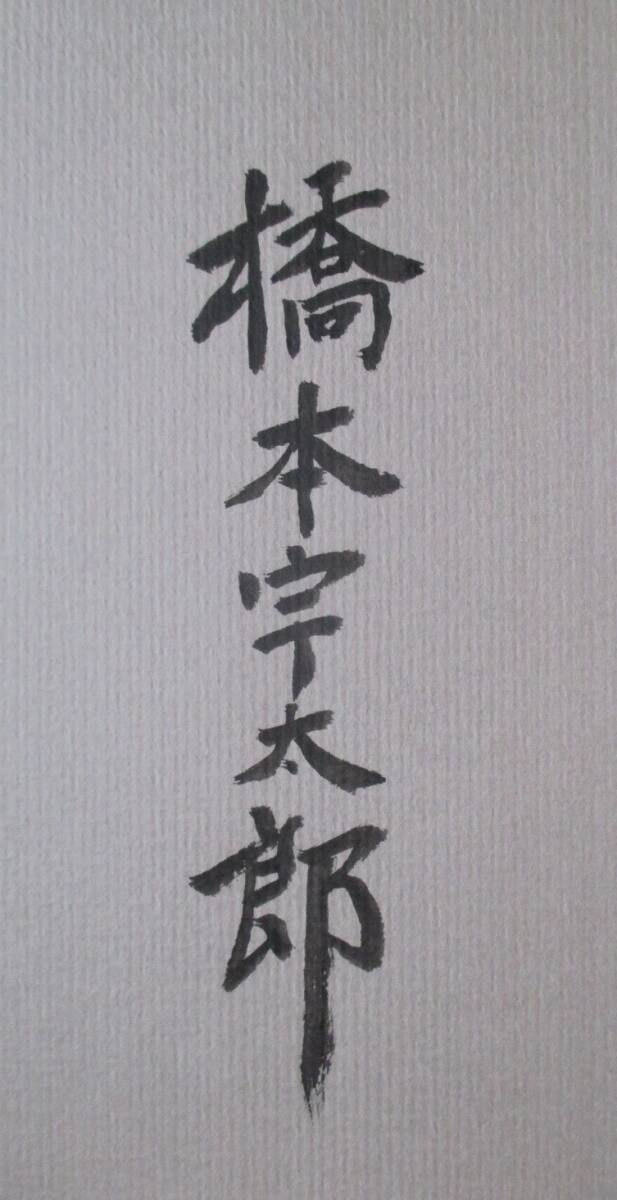 橋本宇太郎